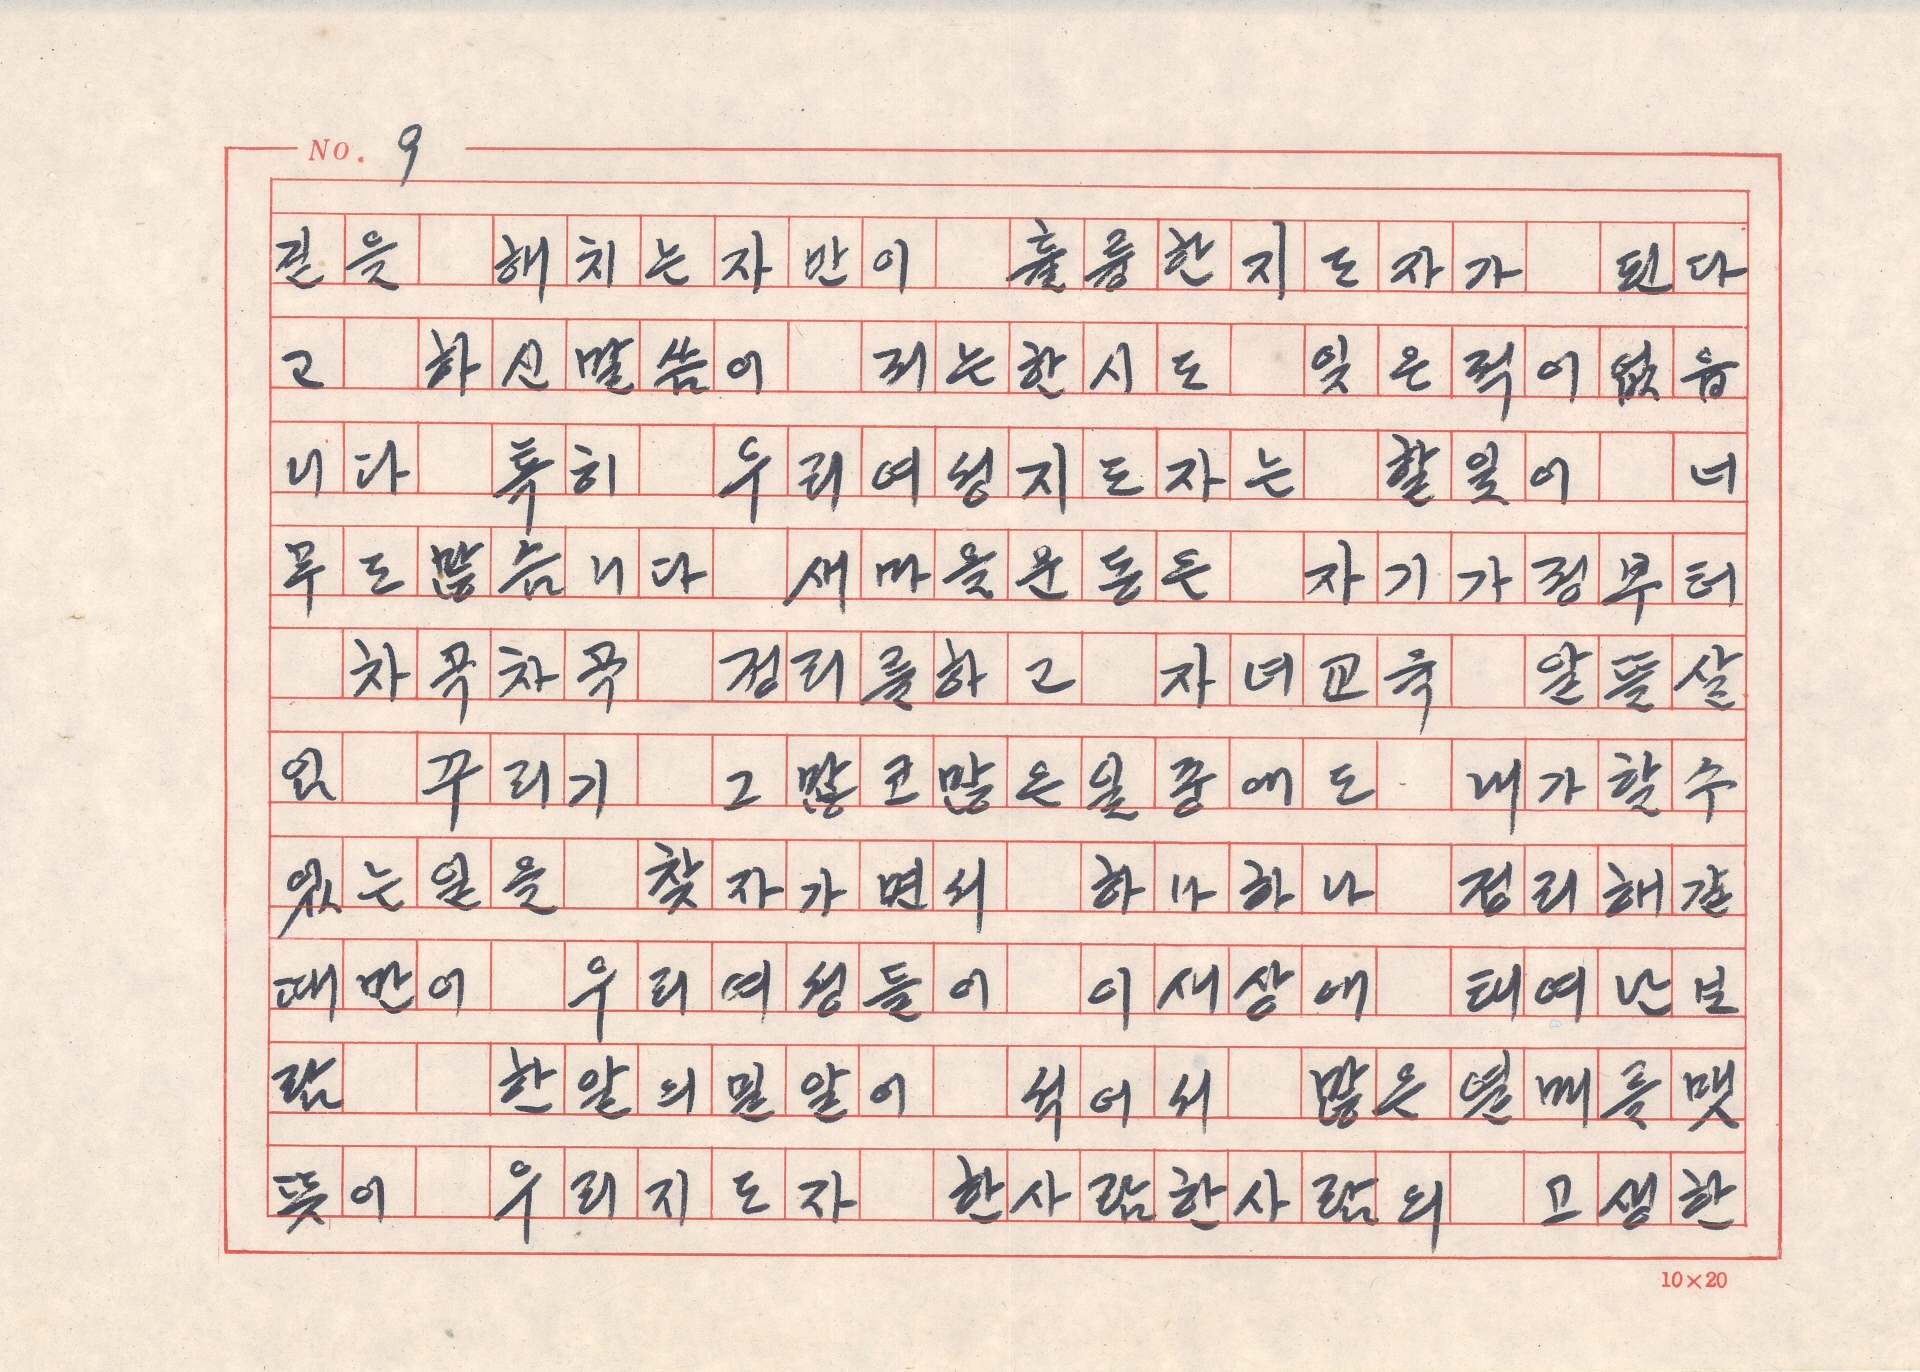 No. 9
길을 해치는자만이 훌륭한지도자가 된다
고 하신말씀이 저는한시도 잊은적이없읍
니다 특히 우리여성지도자는 할일이 너
무도많습니다 새마을운동은 자기가정부터
차곡차곡 정리를하고 자녀교육 알뜰살
림 꾸리기 그많고많은일중에도 내가할수
있는일을 찾자가면서 하나하나 정리해갈
때만이 우리여성들이 이새상애 태여난보
람 한알의밀알이 썩어서 많은열매를맺
뜻이 우리지도자 한사람한사람의 고생한
10×20